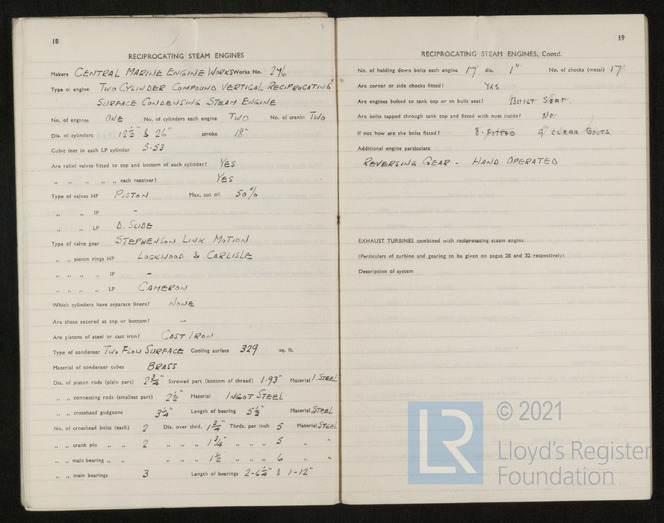 18
RECIPROCATING STEAM ENGINES
Makers CENTRAL MARINE ENGINE WORKS Works No. 246
Type of engine TWO CYLINDER COMPOUND VERTICAL RECIPROCATING
SURFACE CONDENSING STEAM ENGINE
No. of engines ONE No. of cylinders each engine TWO No. of cranks TWO
Dia. of cylinders 12½" & 26" stroke 18"
Cubic feet in each LP cylinder 5.53
Are relief valves fitted to top and bottom of each cylinder? YES
" " " " each receiver? YES
Type of valves HP PISTON Max. cut off 50%
" " IP -
" " LP D. SLIDE
Type of valve gear STEPHENSON LINK MOTION
" " piston rings HP LOCKWOOD & CARLISLE
" " " " IP -
" " " " LP CAMERON
Which cylinders have separate liners? NONE
Are these secured at top or bottom? -
Are pistons of steel or cast iron? CAST IRON
Type of condenser TWO FLOW SURFACE Cooling surface 329 sq. ft.
Material of condenser tubes BRASS
Dia. of piston rods (plain part) 2¾" Screwed part (bottom of thread) 1.93" Material I. STEEL
" " connecting rods (smallest part) 2½" Material INGOT STEEL
" " crosshead gudgeons 3¼" Length of bearing 5½" Material STEEL
No. of crosshead bolts (each) 2 Dia. over thrd. 1¾" Thrds. per inch 5 Material STEEL
" " crank pin " " 2 " " " 1¾" " " 5 " "
" " main bearing " " " " " 1½ " " 6 " "
" " main bearings 3 Length of bearings 2-6¼" & 1-12"
19
RECIPROCATING STEAM ENGINES, Contd.
No. of holding down bolts each engine 17 dia. 1" No. of chocks (metal) 17
Are corner or side chocks fitted? YES
Are engines bolted to tank top or to built seat? BUILT SEAT
Are bolts tapped through tank top and fitted with nuts inside? NO
If not how are the bolts fitted? 8-FITTED 9 CLEAR BOLTS
Additional engine particulars
REVERSING GEAR - HAND OPERATED
EXHAUST TURBINES combined with reciprocating steam engine
(Particulars of turbine and gearing to be given on pages 20 and 32 respectively)
Description of system
© 2021
LR
Lloyd's Register
Foundation